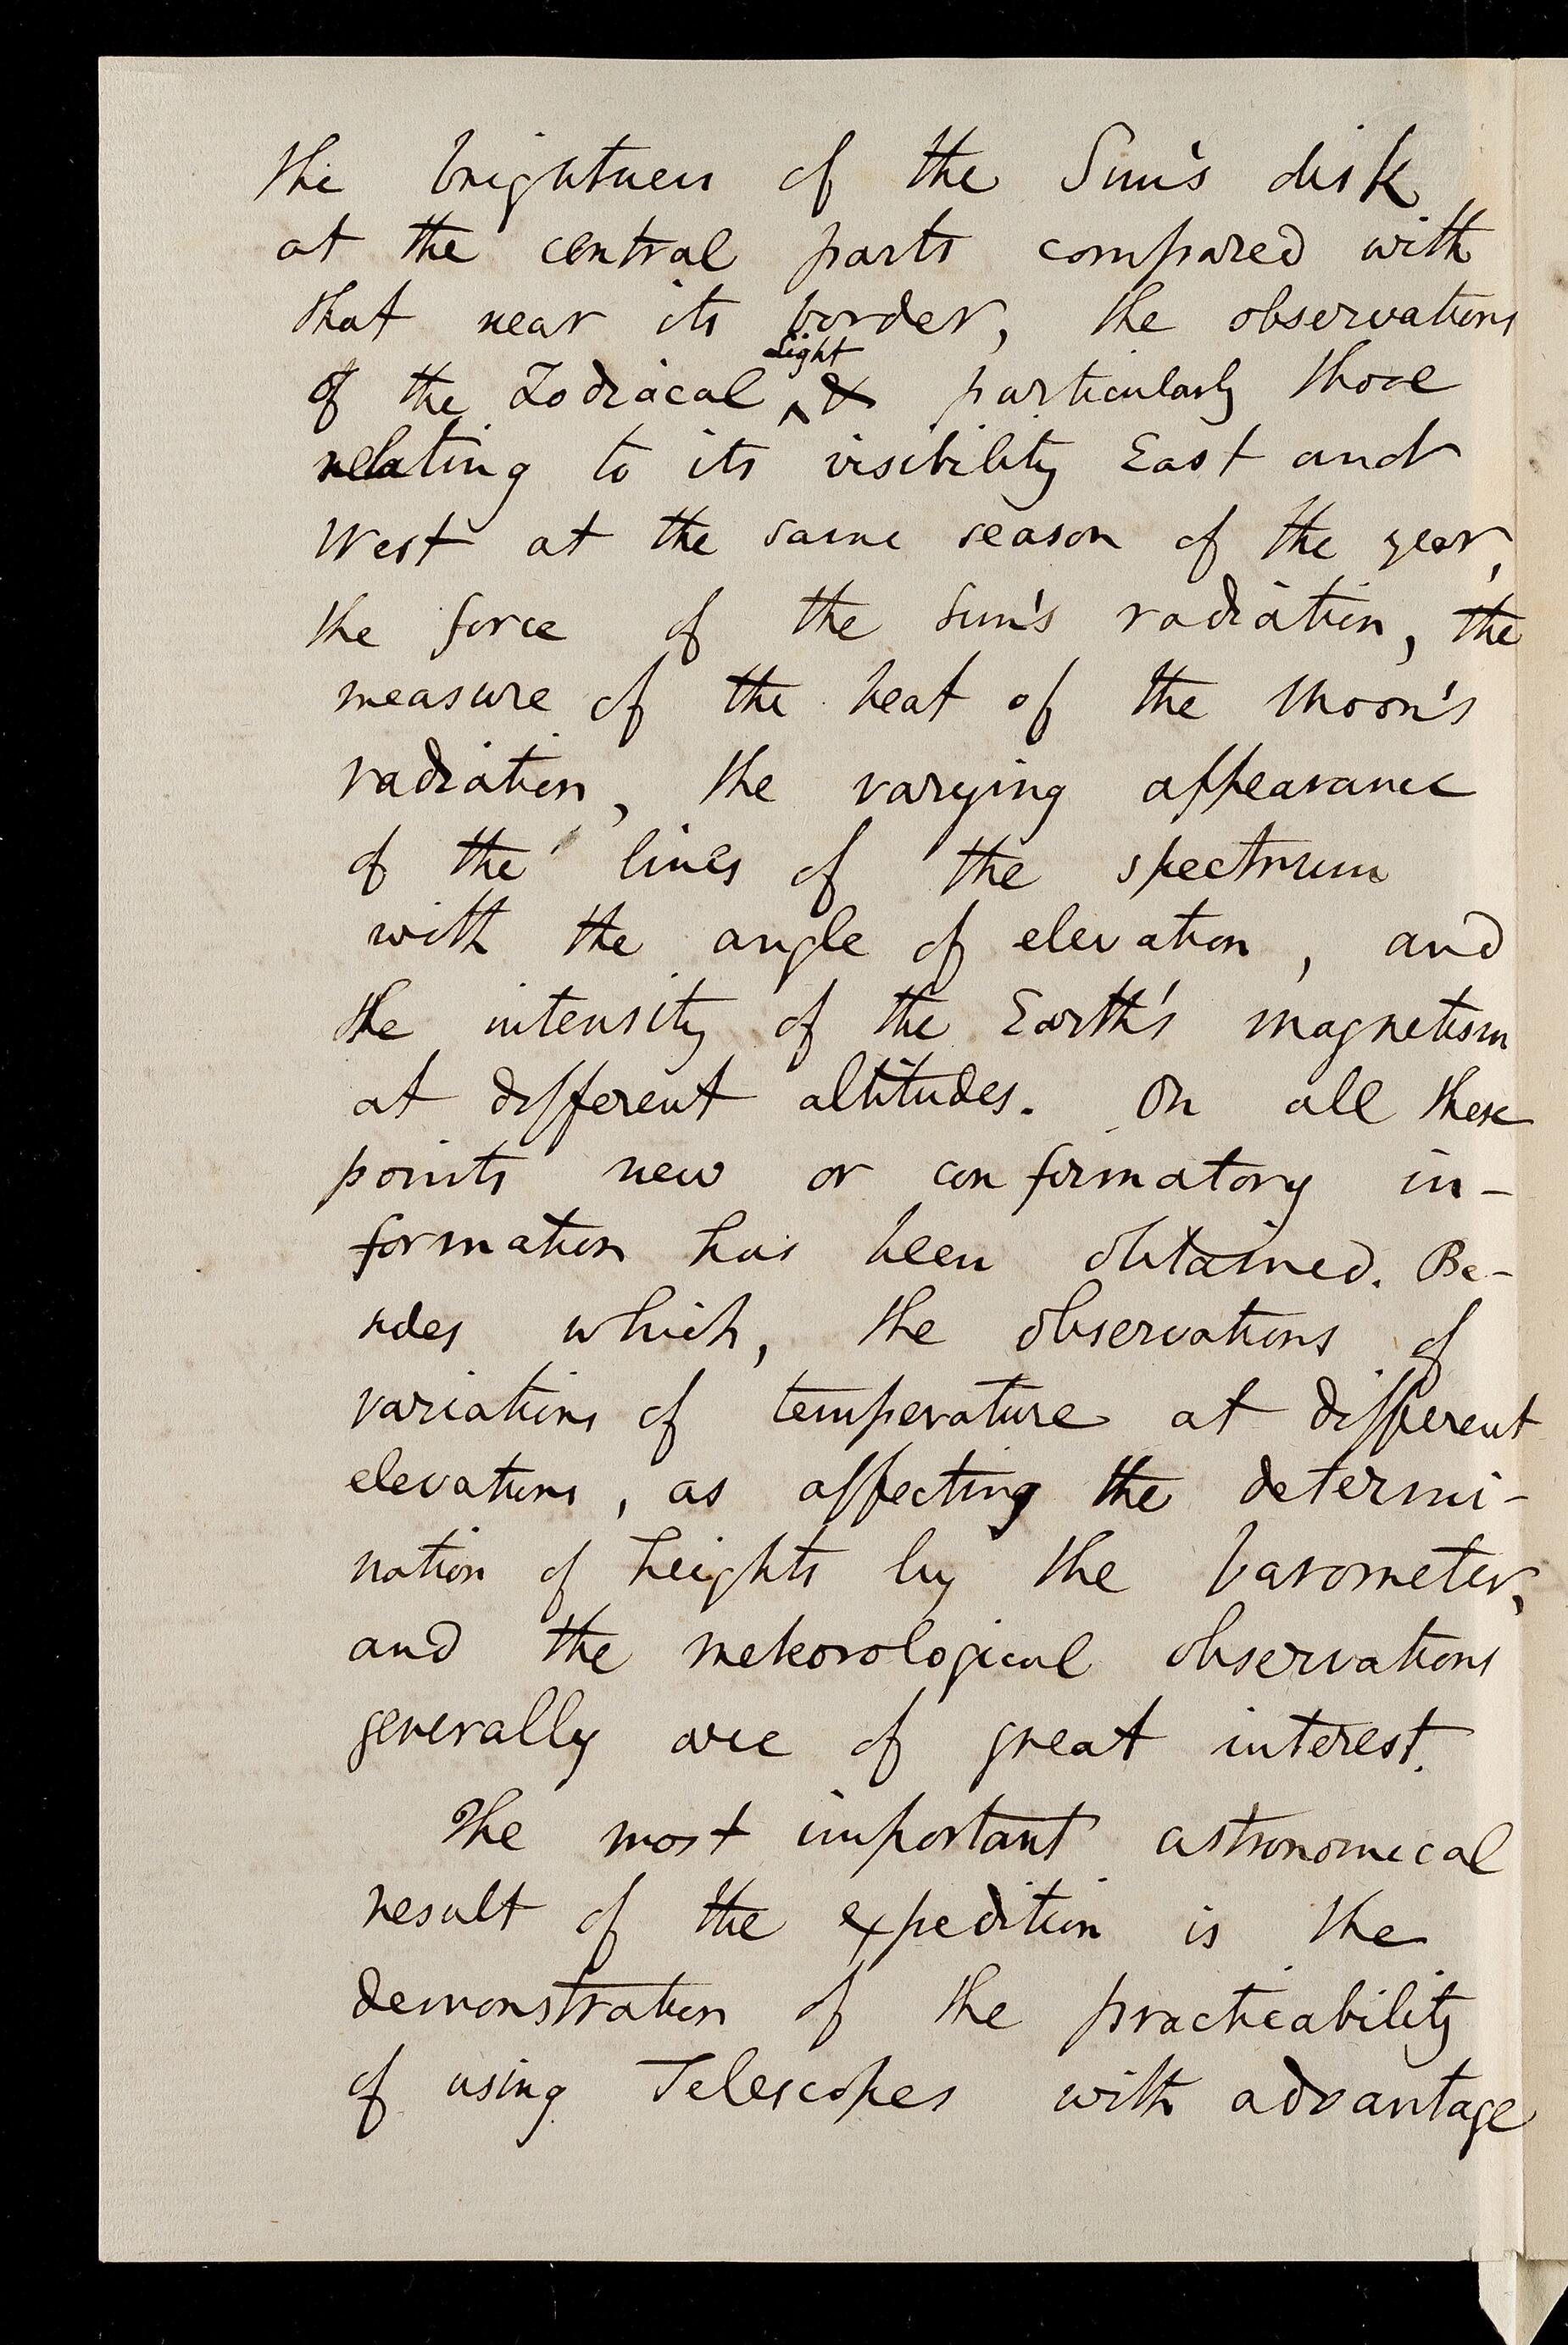 the brightness of the Sun's disk
at the central parts compared with
that near its border, the observations
Light
of the Zodiacal ^ & particularly those
relating to its visibility East and
West at the same season of the year,
the force of the Sun's radiation, the
measure of the heat of the Moon's
radiation, the varying appearance
of the lines of the spectrum
with the angle of elevation, and
the intensity of the Earth's magnetism
at different altitudes. On all these
points new or confirmatory in-
formation has been obtained. Be-
sides which, the observations of
variations of temperature at different
elevations, as affecting the determi-
nation of heights by the barometer,
and the meteorological observations
generally are of great interest.
The most important astronomical
result of the expedition is the
demonstration of the practicability
of using Telescopes with advantage